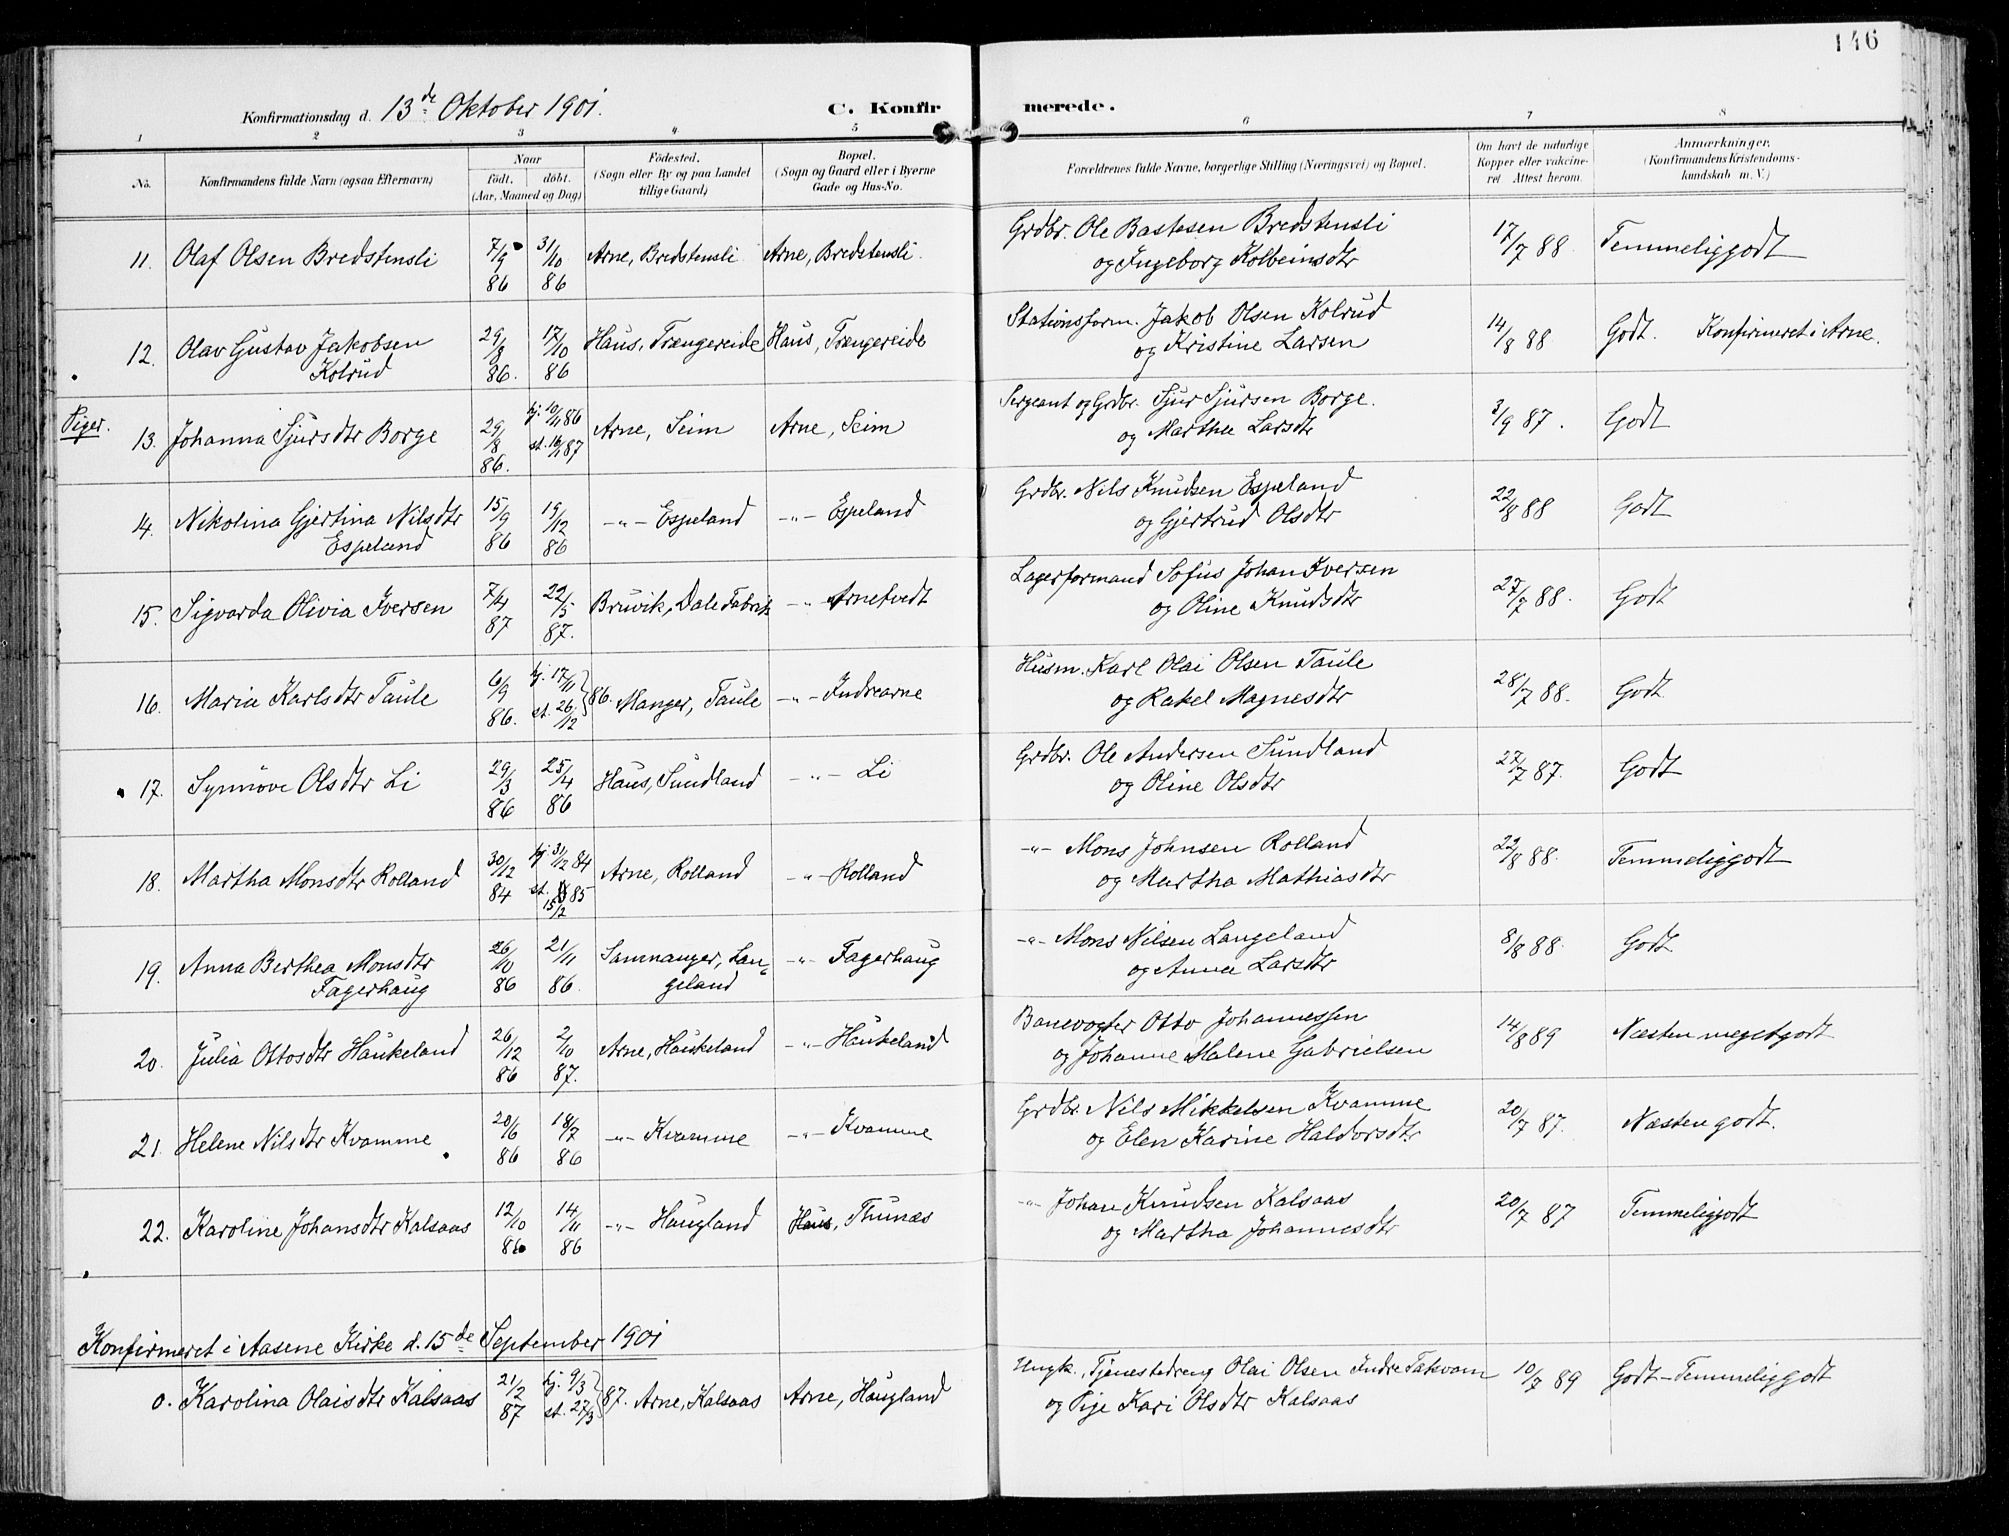 146
Konfirmationsdag d. 13de Oktober 1901.
C. Konfirmerede.
1 2 3 4 5 6 7 8
No.
Konfirmandens fulde Navn (ogsaa Efternavn)
Naar
födt. döbt.
(Aar, Maaned og Dag)
Födested.
(Sogn eller By og paa Landet
tillige Gaard)
Bopæl.
(Sogn og Gaard eller i Byerne
Gade og Hus-No.
Forældrenes fulde Navne, borgerlige Stilling (Næringsvei) og Bopæl.
Om havt de naturlige
Kopper eller vakcine-
ret Attest herom.
Anmærkninger.
(Konfirmandens Kristendoms-
kundskab m. V.)
11. Olaf Olsen Bredstensli 7/9 86 31/10 86 Arne, Bredstensli Arne, Bredstensli.
Grdbr. Ole Bastesen Bredstensli
og Ingeborg Kolbeinsdtr
17/7 88 Temmeliggodt
12. Olav Gustav Jakobsen
Kolrud
29/8 86. 17/10 86 Haus, Trængereide Haus, Trængereide
Stationsform. Jakob Olsen Kolrud
og Kristine Larsen
14/8 88 Godt. Konfirmeret i Arne.
Piger.
13. Johanna Sjursdtr Borge 29/8 86. hj. 10/11 86 st. 16/1 87 Arne, Seim Arne, Seim
Sergeant og Grdbr. Sjur Sjursen Borge.
og Marthe Larsdtr
3/9 87. Godt
14. Nikolina Gjertina Nilsdtr
Espeland
15/9 86 19/12 86 -"- Espeland -"- Espeland
Grdbr. Nils Knudsen Espeland
og Gjertrud Olsdtr
22/8 88 Godt
15. Sigvarda Olivia Iversen 7/4 87 22/5 87. Bruvik, Dale Fabrik -"- Arnetvedt
Lagerformand Sofus Johan Iversen
og Oline Knudsdtr
27/7 88. Godt
16. Maria Karlsdtr Taule 6/9 86. hj. 17/11 st. 26/12 86. Manger, Taule -"- Indrearne
Husm. Karl Olai Olsen Taule
og Rakel Magnesdtr
28/7 88. Godt
17. Synnöve Olsdtr Li 29/3 86 25/4 86 Haus, Sundland -"- Li
Grdbr. Ole Andersen Sundland
og Oline Olsdtr
27/7 87. Godt
18. Martha Monsdtr Rolland 30/12 84 hj. 31/12 84 st. 15/2 85 Arne, Rolland -"- Rolland
-"- Mons Johnsen Rolland
og Martha Mathiasdtr
22/8 88. Temmeliggodt
19. Anna Berthea Monsdtr
Fagerhaug
26/10 86 21/11 86. Samnanger, Lan-
geland
-"- Fagerhaug
-"- Mons Nilsen Langeland
og Anna Larsdtr
8/8 88. Godt
20. Julia Ottosdtr Haukeland 26/12 86 2/10 87. Arne, Haukeland -"- Haukeland
Banevogter Otto Johannessen
og Johanne Malene Gabrielsen
14/8 89 Næsten megetgodt
21. Helene Nilsdtr Kvamme 20/6 86 18/7 86 -"- Kvamme -"- Kvamme
Grdbr. Nils Mikkelsen Kvamme
og Elen Karine Haldorsdtr
20/7 87. Næsten godt.
22. Karoline Johansdtr Kalsaas 12/10 86 14/11 86 -"- Haugland Haus, Thunæs
-"- Johan Knudsen Kalsaas
og Martha Johannesdtr
20/7 87 Temmeliggodt
Konfirmeret i Aasene Kirke d. 15de September 1901
0. Karolina Olaisdtr Kalsaas 21/2 87 hj. 9/3 st. 27/3 87. Arne, Kalsaas Arne, Haugland
Ungk., Tjenestedreng Olai Olsen Indre Takvam
og Pige Kari Olsdtr Kalsaas
10/7 89 Godt-Temmeliggodt